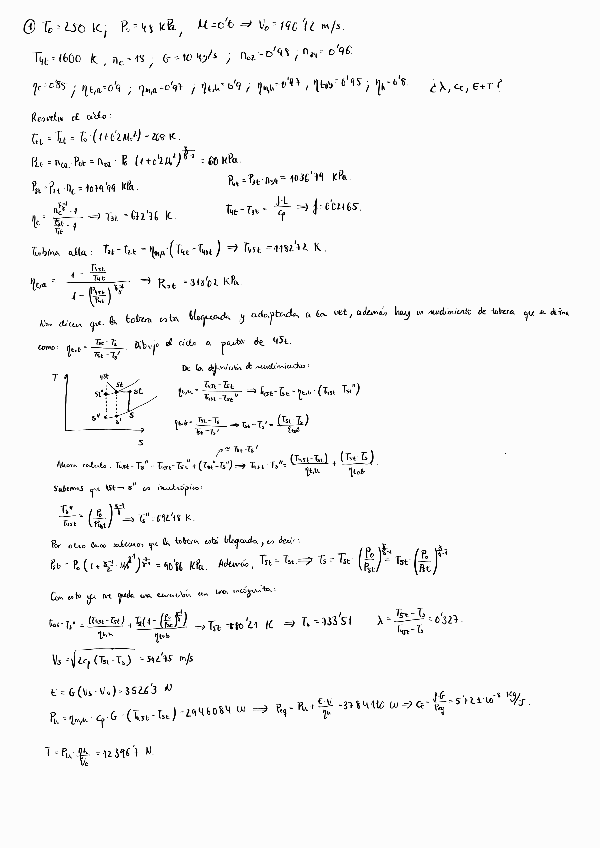 ① T₀ = 250 K; P₀ = 48 KPa, M = 0'6 ⇒ V₀ = 190'12 m/s.
T₄t = 1600 K, π_c = 18, G = 10 kg/s; π₀₂ = 0'98, π₃₄ = 0'96.
η_c = 0'85; η_t,a = 0'9; η_m,a = 0'97, η_t,u = 0'9; η_m,u = 0'97, η_tob = 0'95; η_h = 0'8. ¿λ, c_e, E+T?
Resuelvo el ciclo:
T₂t = T₀ · (1+0'2M₀²) = 268 K.
P₂t = π₀₂ · P₀t = π₀₂ · P₀ (1+0'2M₀²)^(γ/(γ-1)) = 60 KPa.
P₃t = P₂t · π_c = 1079'99 KPa. P₄t = P₃t · π₃₄ = 1036'79 KPa.
η_c = (π_c^((γ-1)/γ) - 1)/(T₃t/T₂t - 1) ⇒ T₃t = 672'76 K. T₄t - T₃t = f·L/c_p ⇒ f = 0'02165.
Turbina alta: T₃t - T₂t = η_m,a · (T₄t - T₄₅t) ⇒ T₄₅t = 1182'72 K.
η_t,a = (1 - T₄₅t/T₄t)/(1 - (P₄₅t/P₄t)^((γ-1)/γ)) → P₄₅t = 313'02 KPa
Nos dicen que la tobera está bloqueada y adaptada a la vez, además hay un rendimiento de tobera que se define
como: η_tob = (T₅t - T₅)/(T₅t - T₅'). Dibujo el ciclo a partir de 45t.
De la definición de rendimientos:
T 45t 5t 5t' 5t'' 5'' 5' 5 S
η_t,u = (T₄₅t - T₅t)/(T₄₅t - T₅t'') → T₄₅t - T₅t = η_t,u · (T₄₅t - T₅t'')
η_tob = (T₅t - T₅)/(T₅t - T₅') ⇒ T₅t - T₅' = (T₅t - T₅)/η_tob
≈ T₅t - T₅'
Ahora calculo: T₄₅t - T₅'' = T₄₅t - T₅t'' + (T₅t'' - T₅'') ⇒ T₄₅t - T₅'' = (T₄₅t - T₅t)/η_t,u + (T₅t - T₅)/η_tob.
Sabemos que 45t → 5'' es isentrópico:
T₅''/T₄₅t = (P₀/P₄₅t)^((γ-1)/γ) ⇒ T₅'' = 692'18 K.
Por otro lado sabemos que la tobera está bloqueada, es decir:
P₅t = P₀ (1 + (γ-1)/2 · M₅²)^(γ/(γ-1)) = 90'86 KPa. Además, T₅t = T₅t ⇒ T₅ = T₅t · (P₀/P₅t)^((γ-1)/γ) = T₅t (P₀/P₅t)^((γ-1)/γ)
Con esto ya me queda una ecuación con una incógnita:
T₄₅t - T₅'' = (T₄₅t - T₅t)/η_t,u + T₅t(1 - (P₀/P₅t)^((γ-1)/γ))/η_tob → T₅t = 880'21 K ⇒ T₅ = 733'51 λ = (T₅t - T₅)/(T₄₅t - T₅) = 0'327.
V₅ = √(2c_p (T₅t - T₅)) = 542'75 m/s
E = G (V₅ - V₀) = 3526'3 N
P_u = η_m,u · c_p · G · (T₄₅t - T₅t) = 2946084 W ⇒ P_eq = P_u + E·V₀/η_h = 3784116 W ⇒ C_e = fG/P_eq = 5'721·10⁻⁸ kg/J.
T = P_u · η_h/V₀ = 12396'7 N